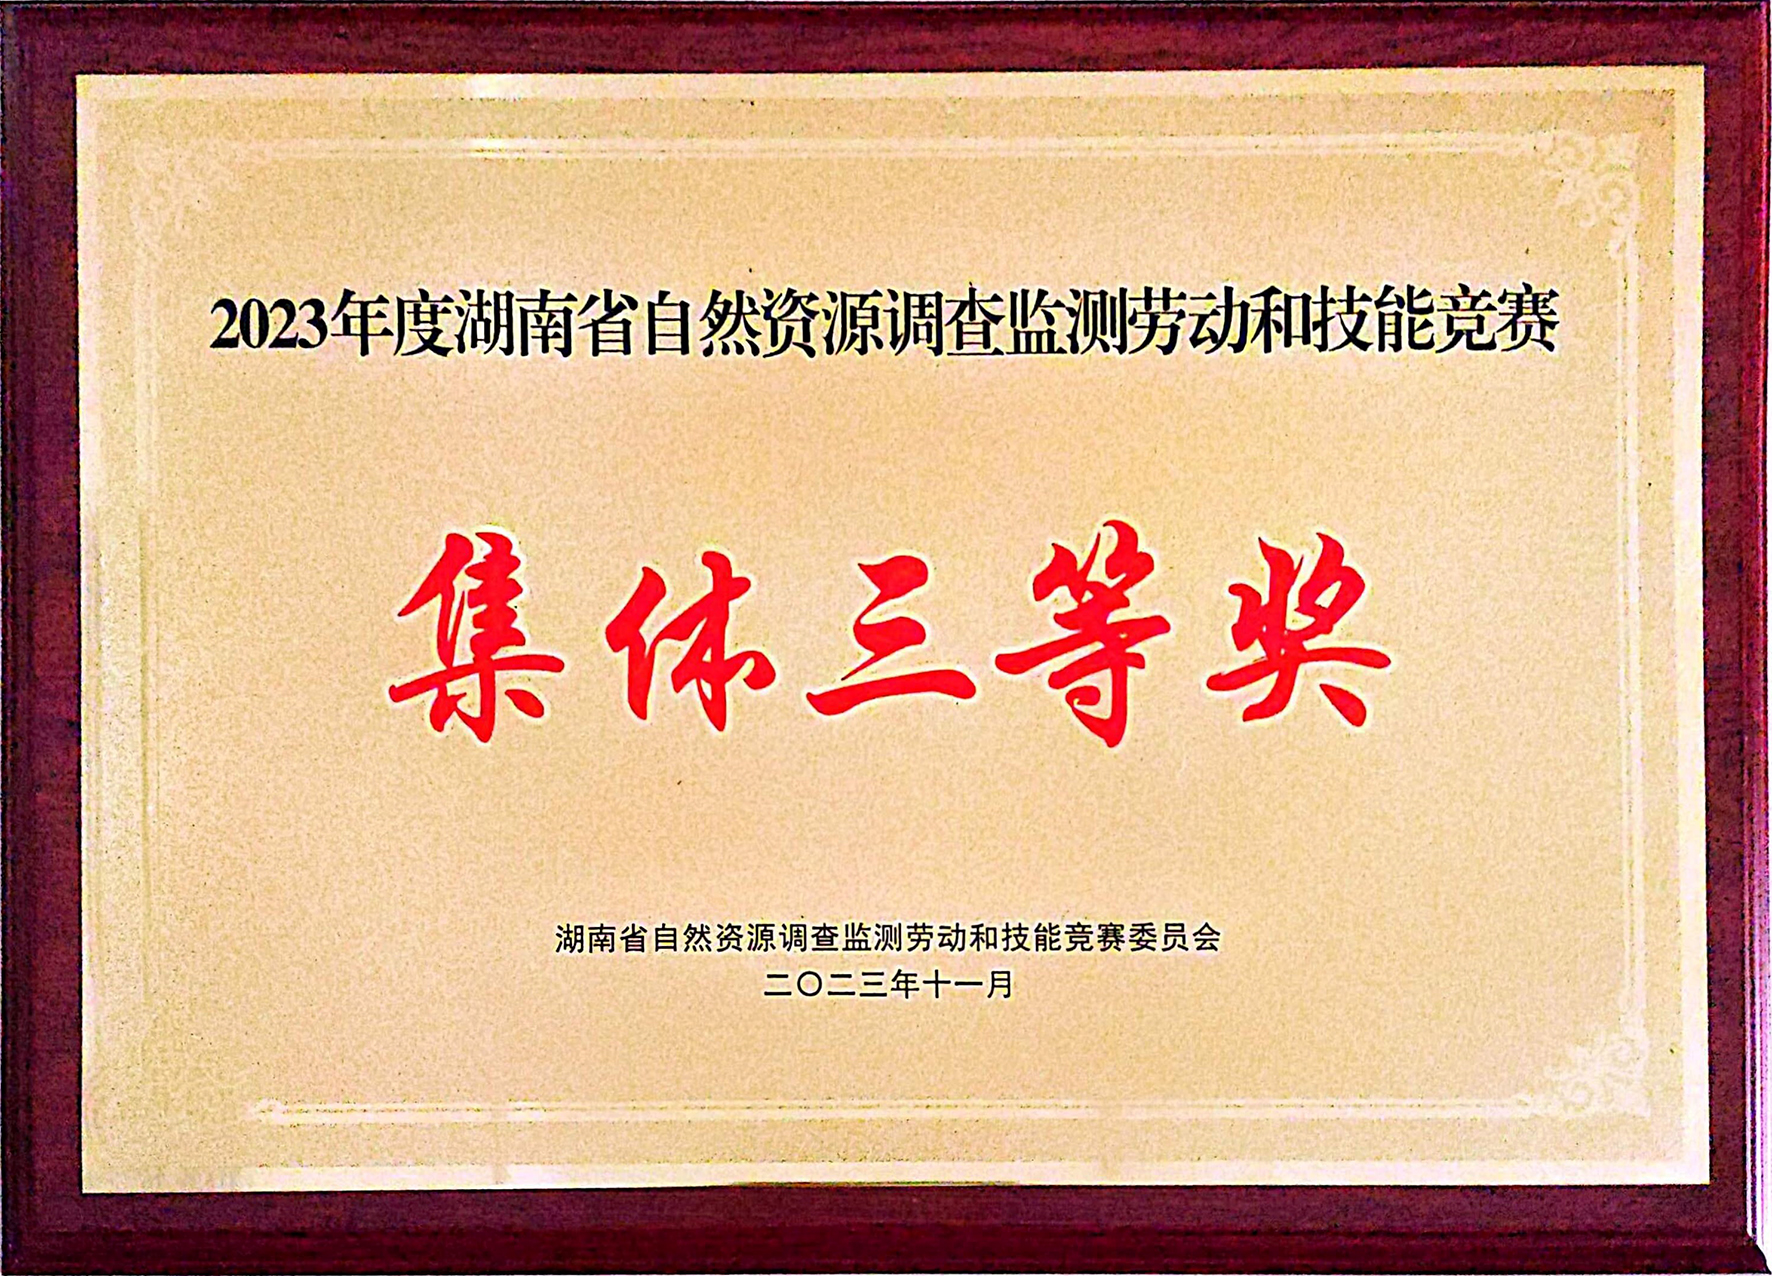 2023年度湖南省自然资源调查监测劳动和技能竞赛
集体三等奖
湖南省自然资源调查监测劳动和技能竞赛委员会
二〇二三年十一月